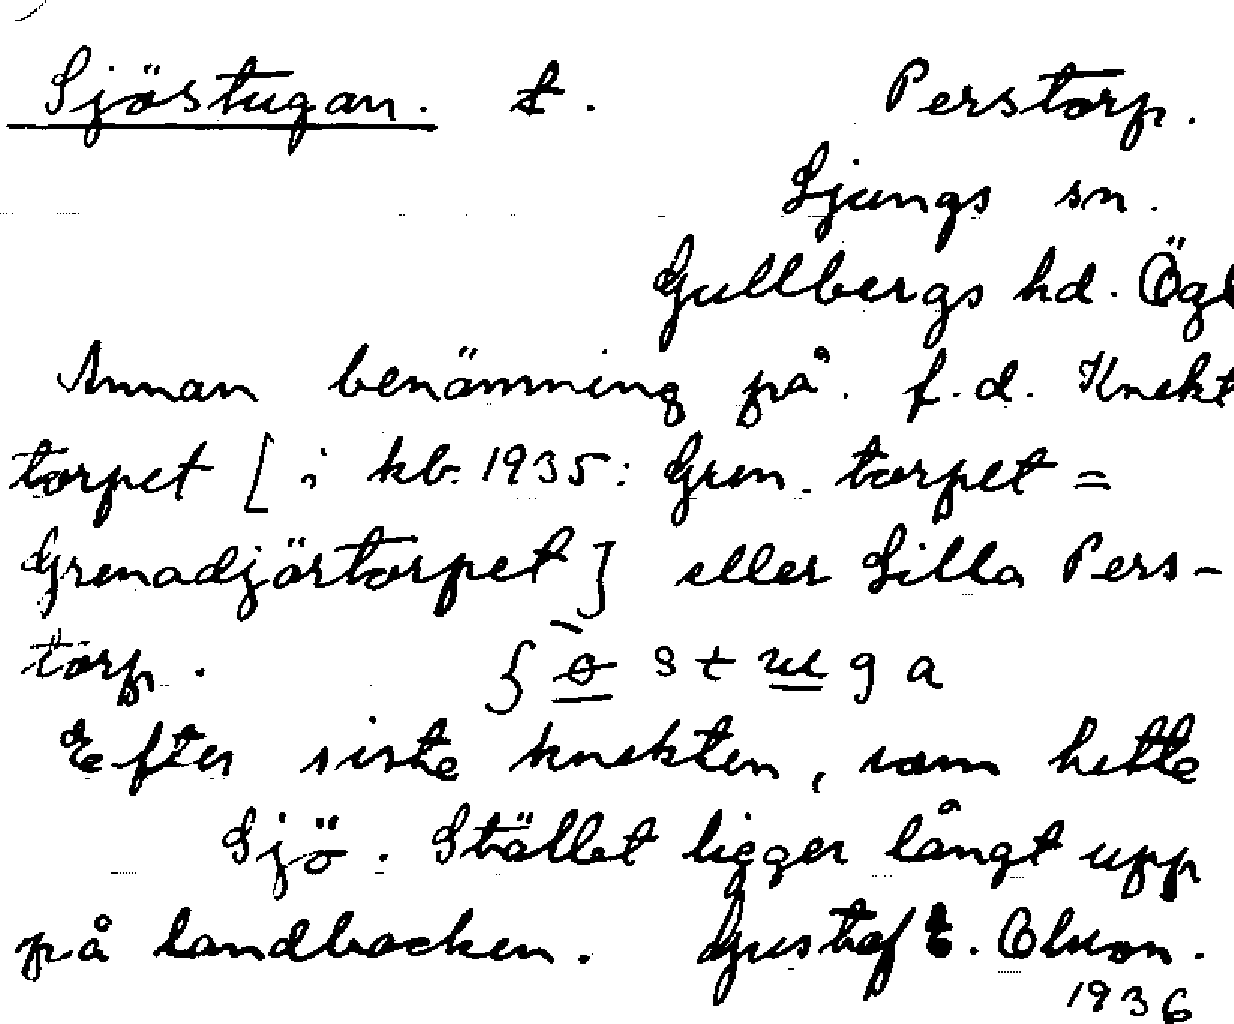 Sjöstugan. t. Perstorp.
Ljungs sn.
Gullbergs hd. Ögl
Annan benämning på f.d. Knekt
torpet [i kb. 1935: Gren. torpet =
Grenadjärtorpet] eller Lilla Pers-
torp.
Efter siste knekten, som hette
Sjö. Stället ligger långt upp
på landbacken. Gustaf E. Olson.
1936